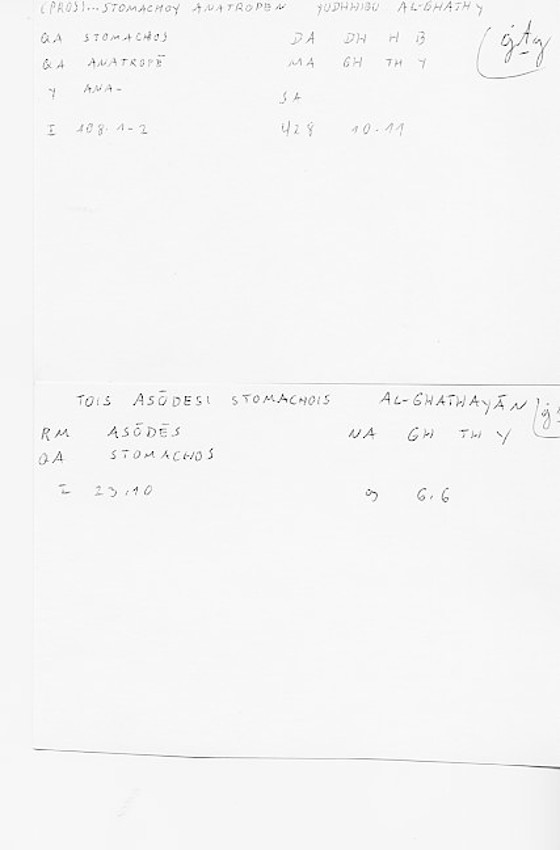 (PROS)...STOMACHOY ANATROPEN YUDHHIBU AL-GHATHY
QA STOMACHOS DA DH H B
QA ANATROPĒ MA GH TH Y
Y ANA-
SA
I 108.1-2 428 10-11
TOIS ASŌDESI STOMACHOIS AL-GHATHAYĀN
RM ASŌDĒS NA GH TH Y
QA STOMACHOS
I 23.10 6.6